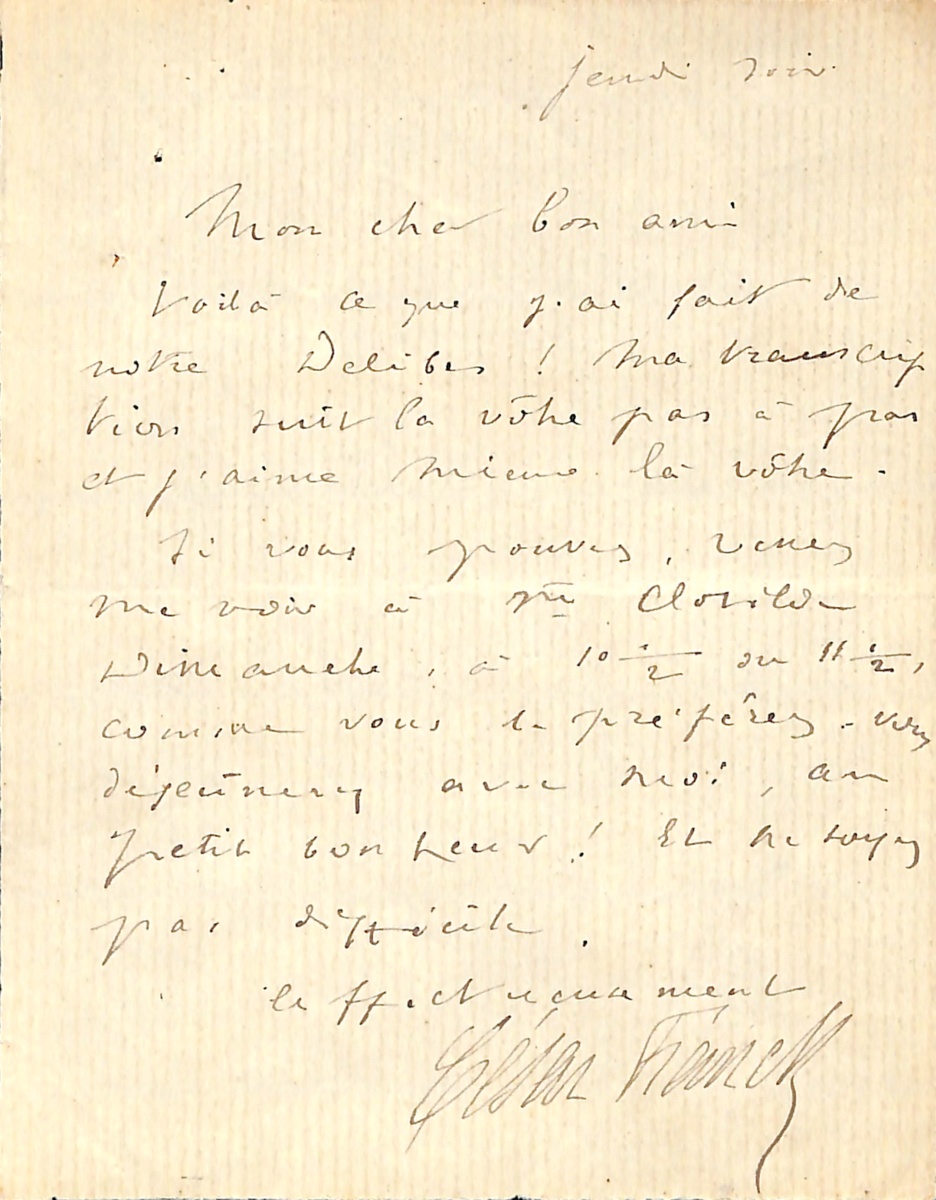 jeudi soir.
Mon cher bon ami
Voilà ce que j'ai fait de
notre Delibes ! Ma transcrip
tion suit la vôtre pas à pas
et j'aime mieux la vôtre.
Si vous pouvez, venez
me voir à Ste Clotilde
Dimanche, à 10 1/2 ou 11 1/2,
comme vous le préférez. Vous
déjeûnerez avec moi, au
petit bonheur ! Et ne soyez
pas difficile.
affectueusement
César Franck